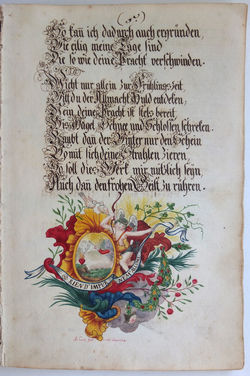 So kan ich dadurch auch ergründen,
Wie eilig meine Tage sind
Die so wie deine Pracht verschwinden.
Nicht nur allein zur Frühlings Zeit,
Will du der Allmacht Huld entdeken,
Nein deine Pracht ist stets bereit,
Bis Hagel, Schnee und Schlossen schreken.
Raubt dan der Winter nur den Schein
Wo mit sich deine Strahlen zieren,
So soll dies Werk mir nützlich seyn,
Auch dan den frohen Geist zu rühren.